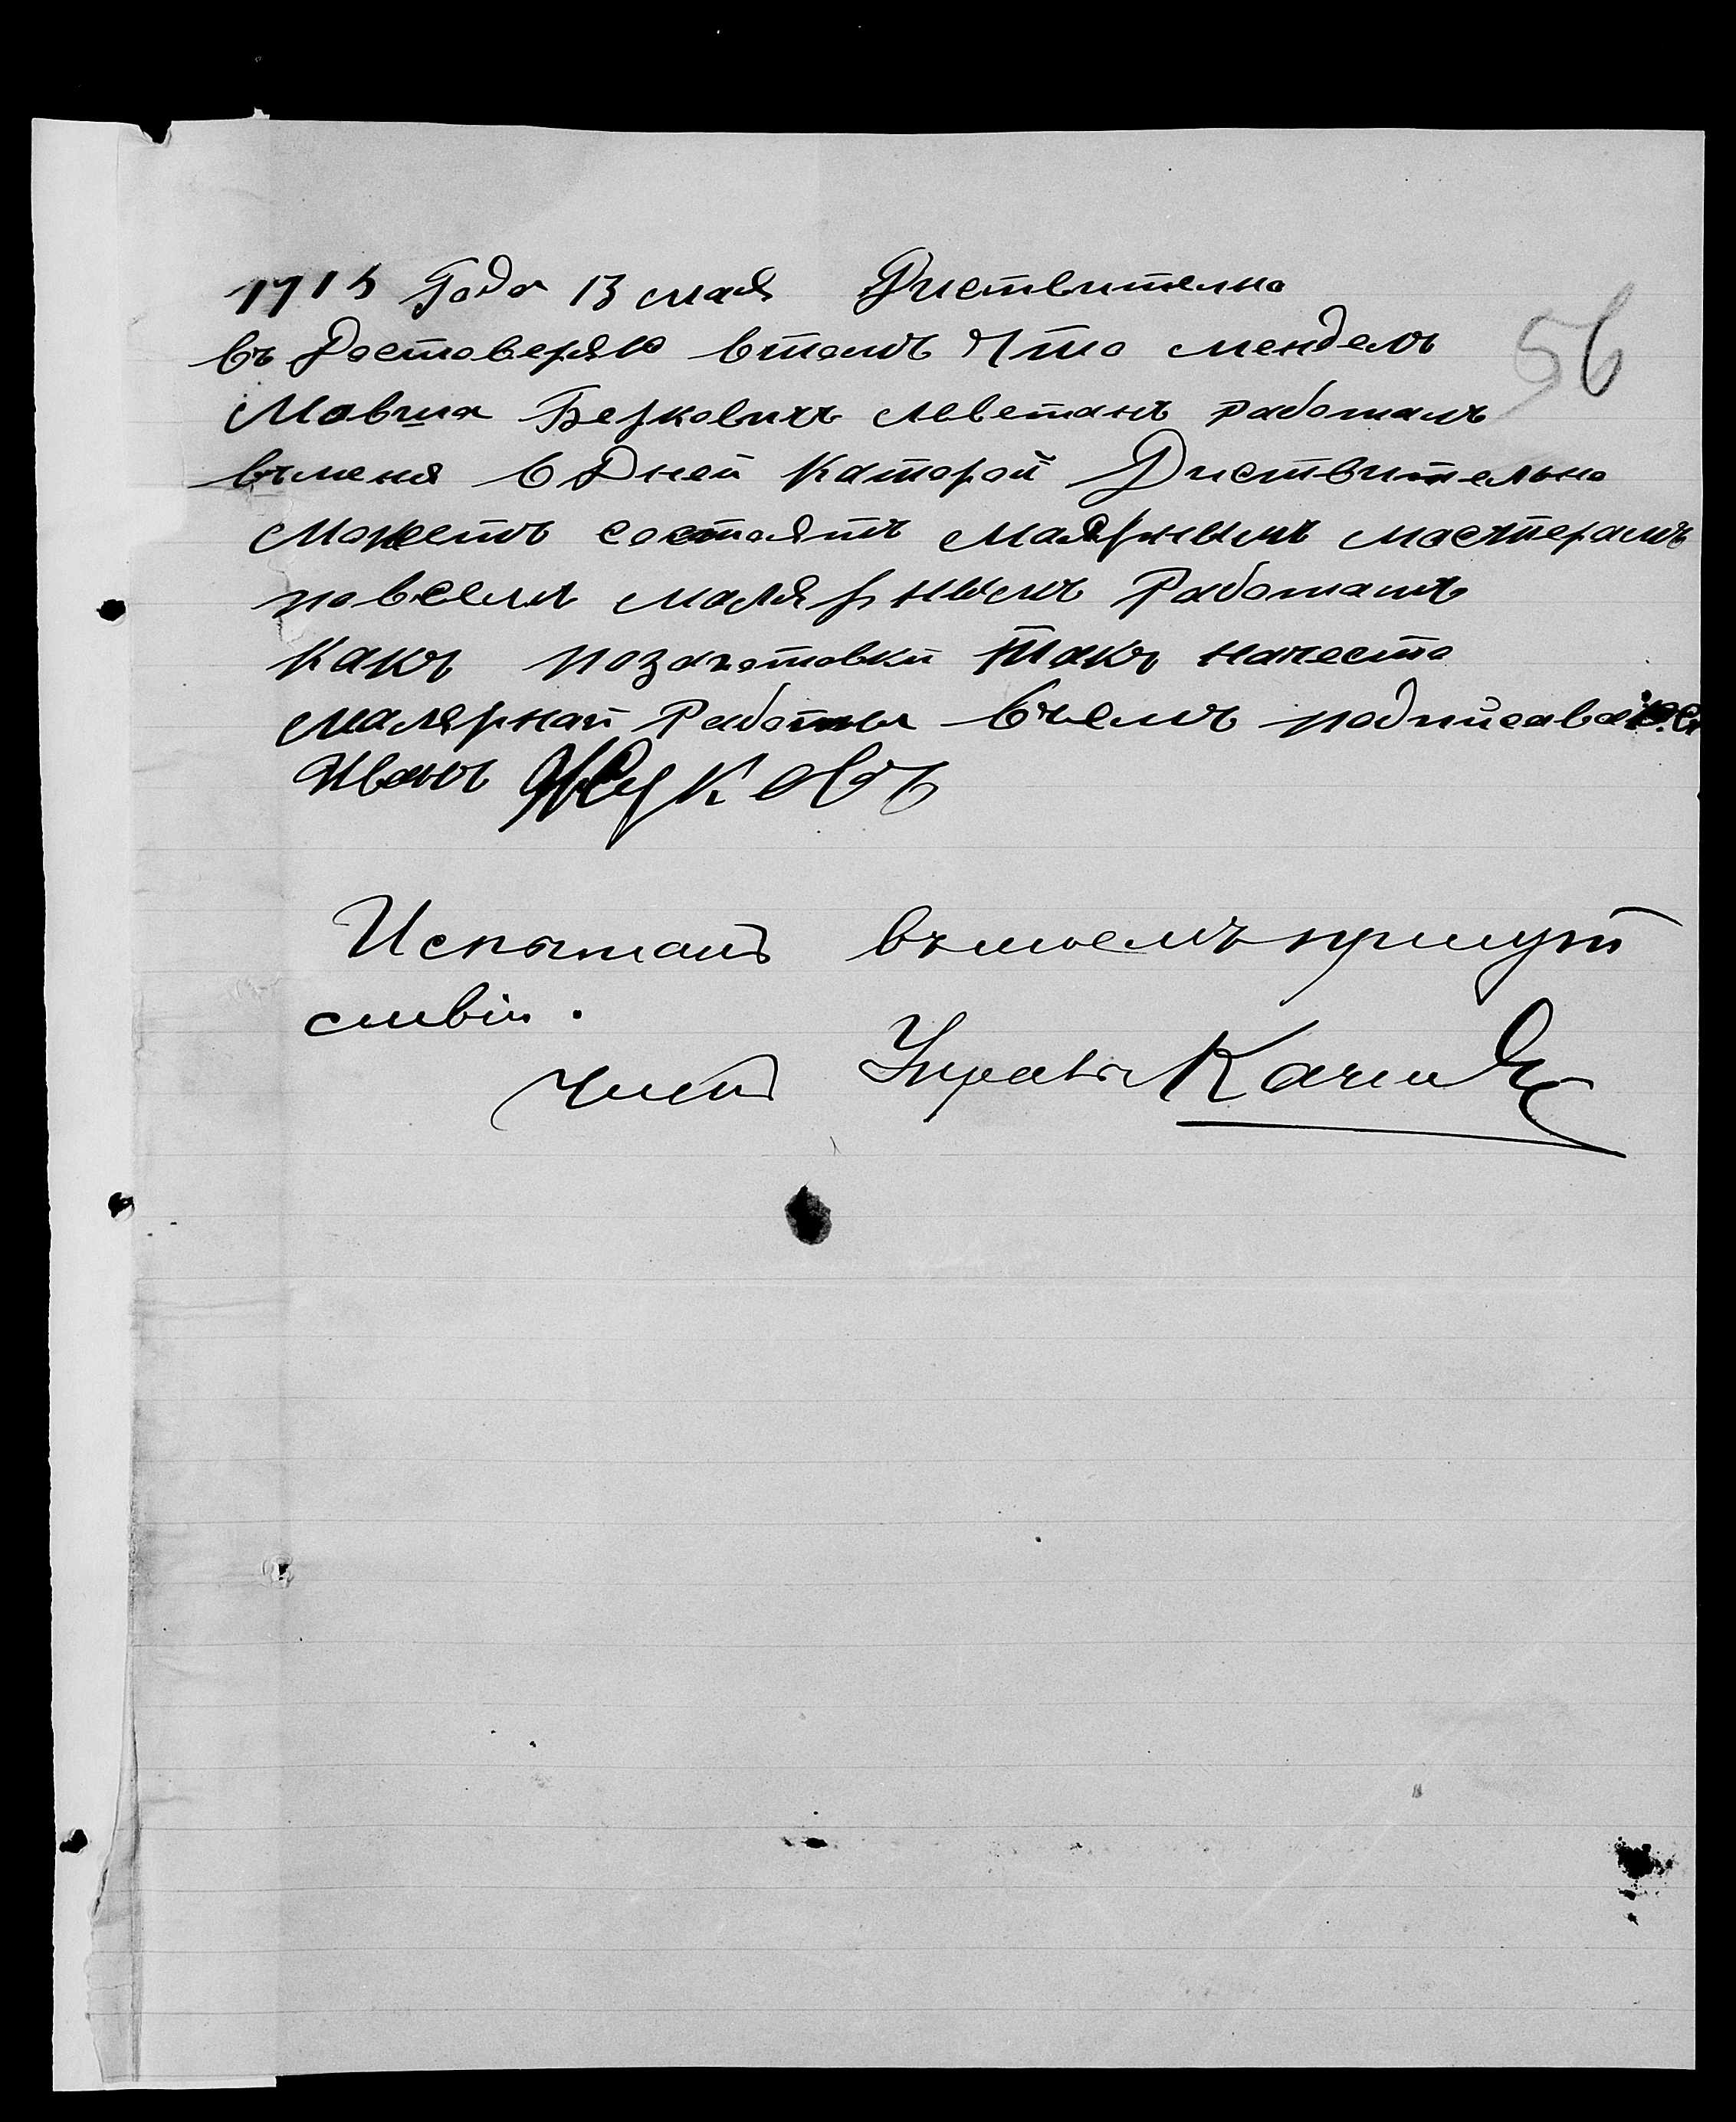 1915 Года 13 мая Диствително
въ Достоверяю втомъ Что мендель
Мовша Берковичъ Леветанъ работалъ
въменя 6 Дней Каторой Диствительно
Можетъ состоять Малярнымъ мастерамъ
повсемъ малярнымъ Работамъ
Какъ позаготовки Такъ начесто
Малярнай Работы Вчемъ подписаваюсь
Иванъ Жуковъ
56
Испытанъ въ моемъ присут
ствіи.
Членъ Управы